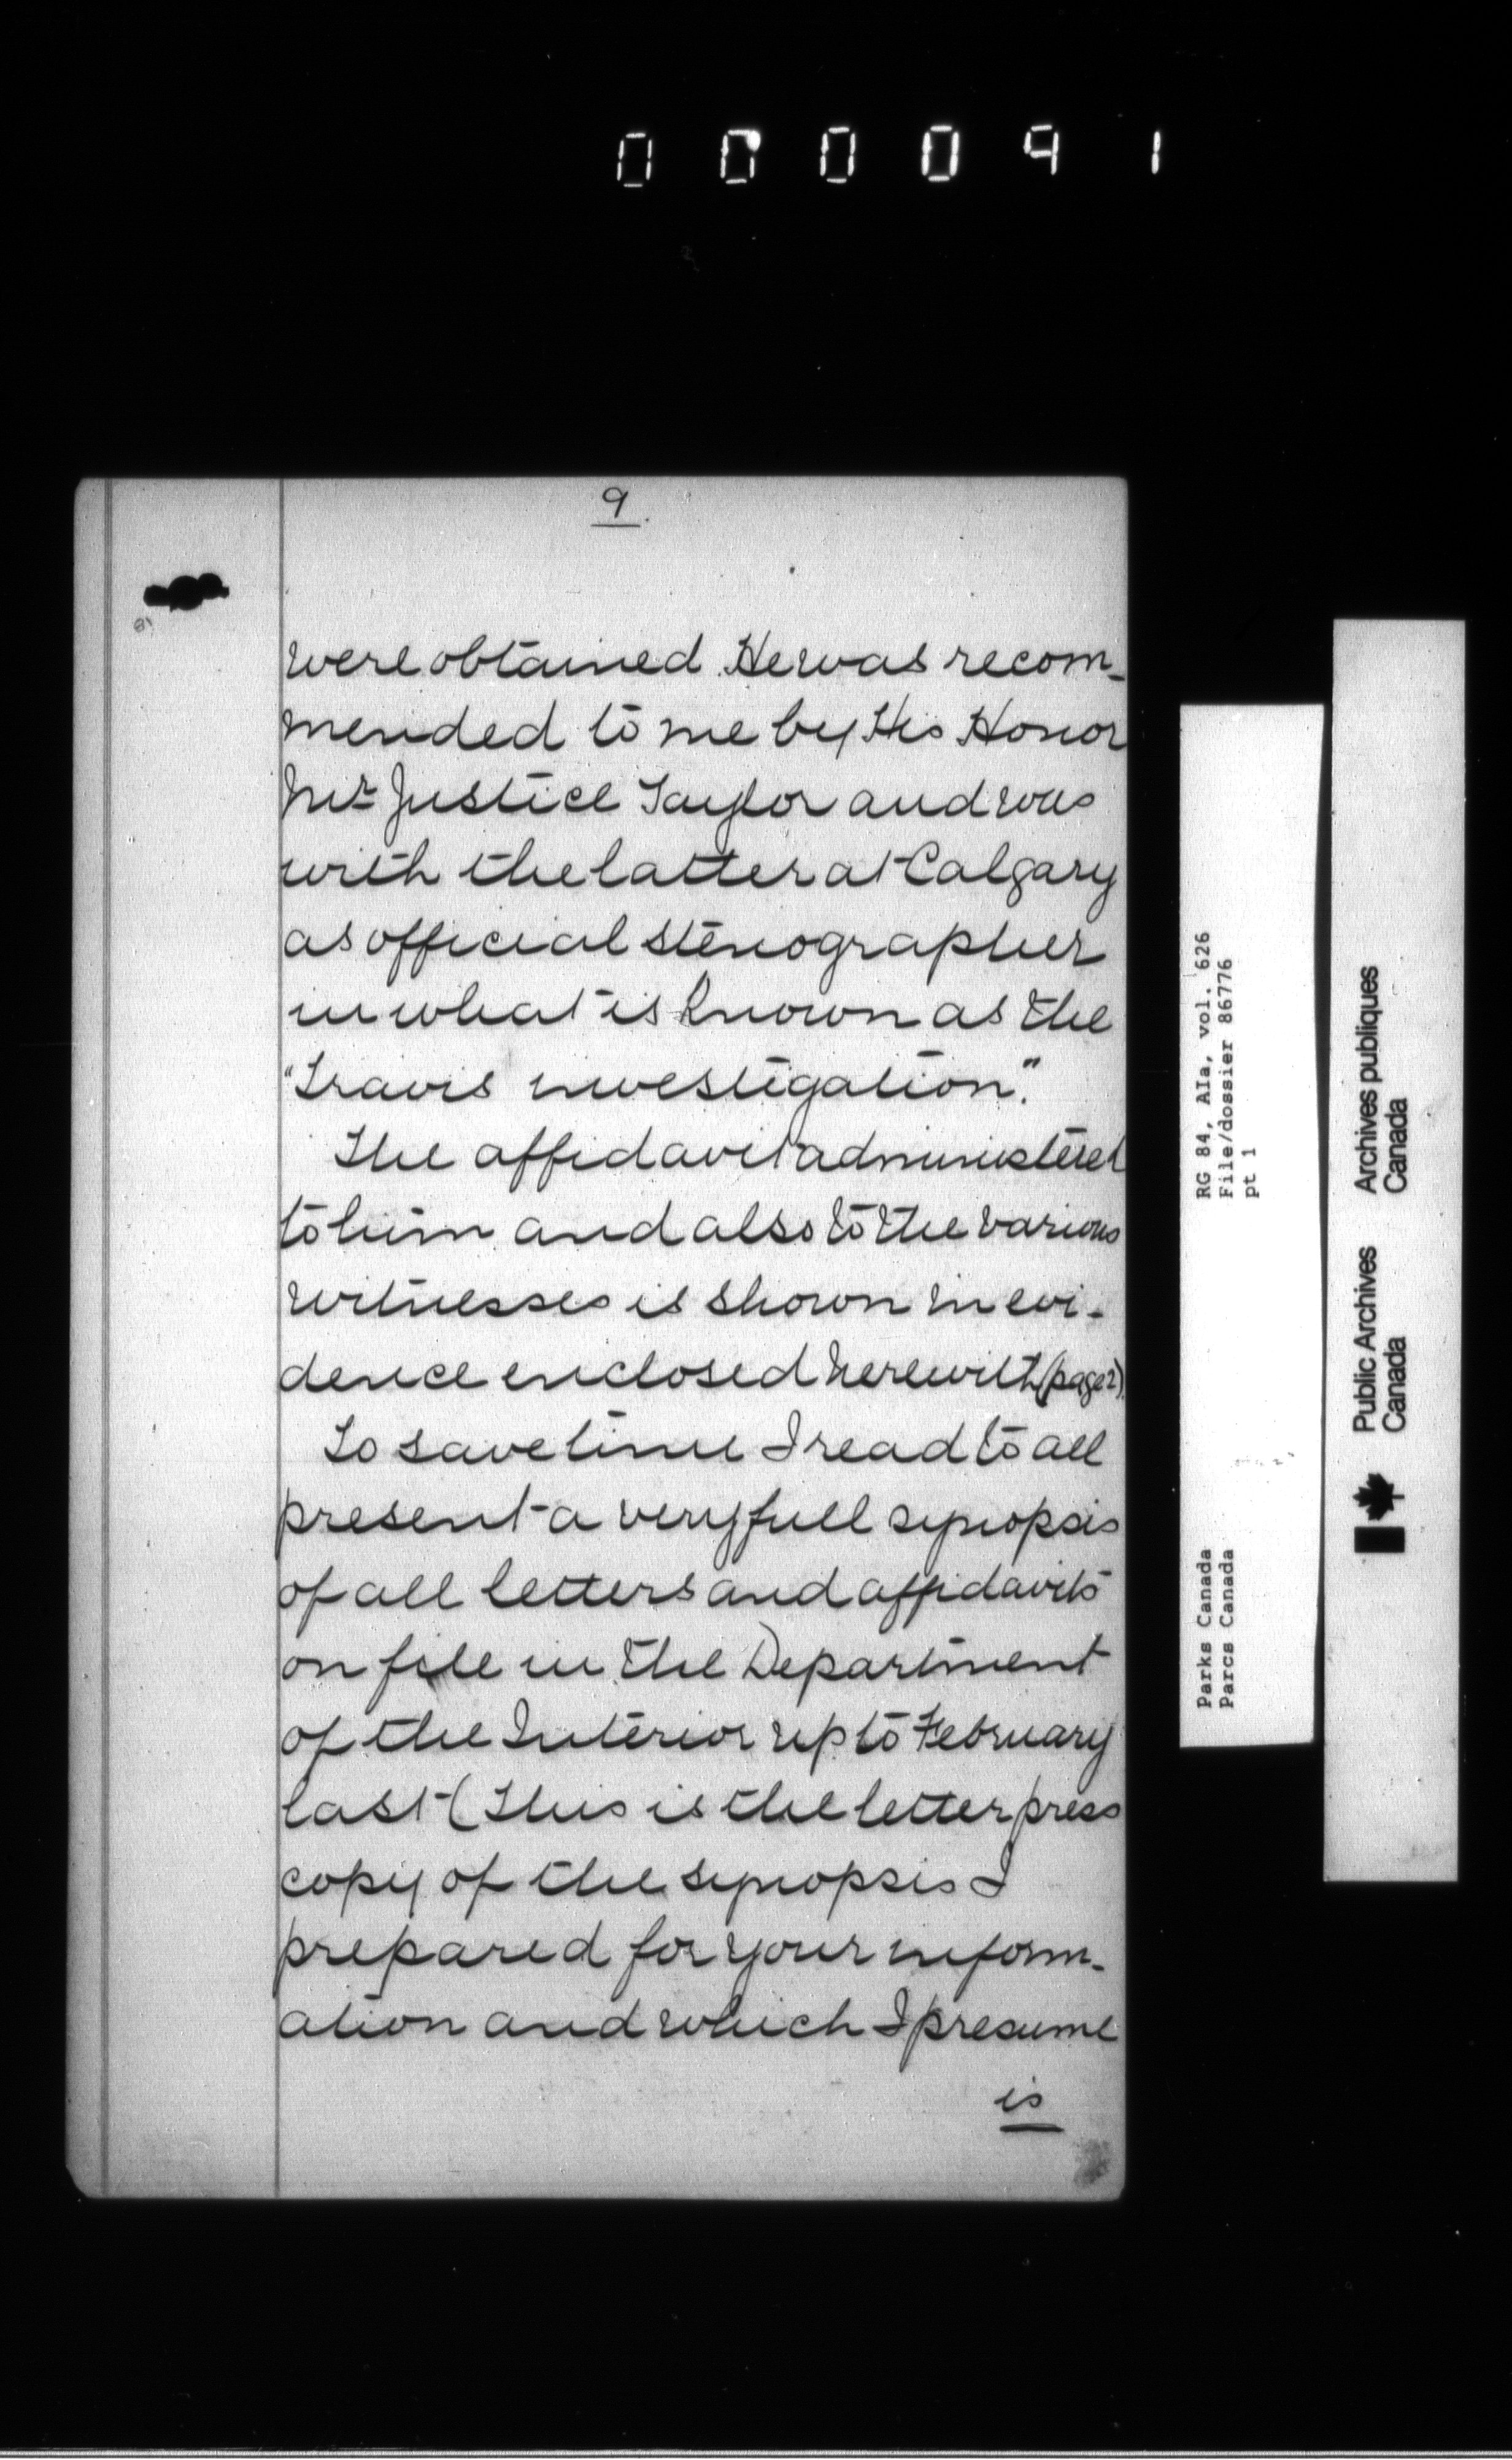 000091
9.
were obtained. He was recom-
mended to me by His Honor
Mr Justice Taylor and was
with the latter at Calgary
as official stenographer
in what is known as the
"Travis investigation."
The affidavit administered
to him and also to the various
witnesses is shown in evi-
dence enclosed herewith (page 2).
To save time I read to all
present a very full synopsis
of all letters and affidavits
on file in the Department
of the Interior up to February
last (This is the letter press
copy of the synopsis I
prepared for your inform-
ation and which I presume
is
RG 84, AIa, vol. 626
File/dossier 86776
pt 1
Parks Canada
Parcs Canada
Public Archives
Canada
Archives publiques
Canada